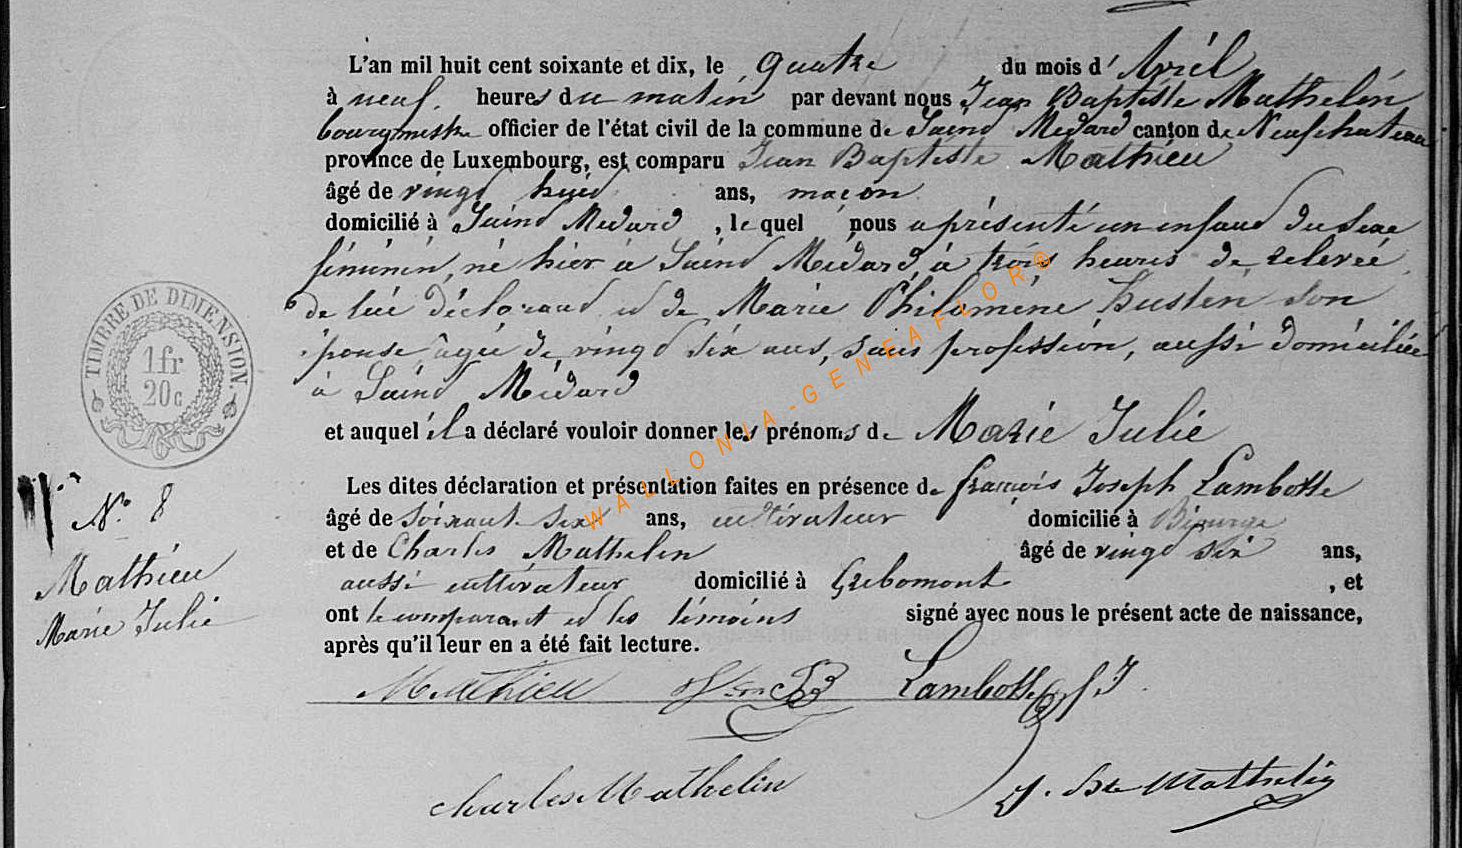 L'an mil huit cent soixante et dix, le quatre du mois d'Avril
à neuf heures du matin par devant nous Jean Baptiste Mathelin
bourgmestre officier de l'état civil de la commune de Saint Médard canton de Neufchateau
province de Luxembourg, est comparu Jean Baptiste Mathieu
âgé de vingt huit ans, maçon
domicilié à Saint Médard, lequel nous a présenté un enfant du sexe
féminin, né hier à Saint Médard, à trois heures de relevée,
de lui déclarant et de Marie Philomène Husten son
épouse, âgée de vingt six ans, sans profession, aussi domiciliée
à Saint Médard
et auquel il a déclaré vouloir donner les prénoms de Marie Julie
Les dites déclaration et présentation faites en présence de François Joseph Lambotte
âgé de soixante six ans, cultivateur domicilié à
et de Charles Mathelin âgé de vingt six ans,
aussi cultivateur domicilié à Gribomont, et
ont le comparant et les témoins signé avec nous le présent acte de naissance,
après qu'il leur en a été fait lecture.
Mathieu JB Lambotte f J
Charles Mathelin J. Bte Mathelin
TIMBRE DE DIMENSION.
1 fr
20 c
N° 8
Mathieu
Marie Julie
WALLONIA-GENEAFLOR®